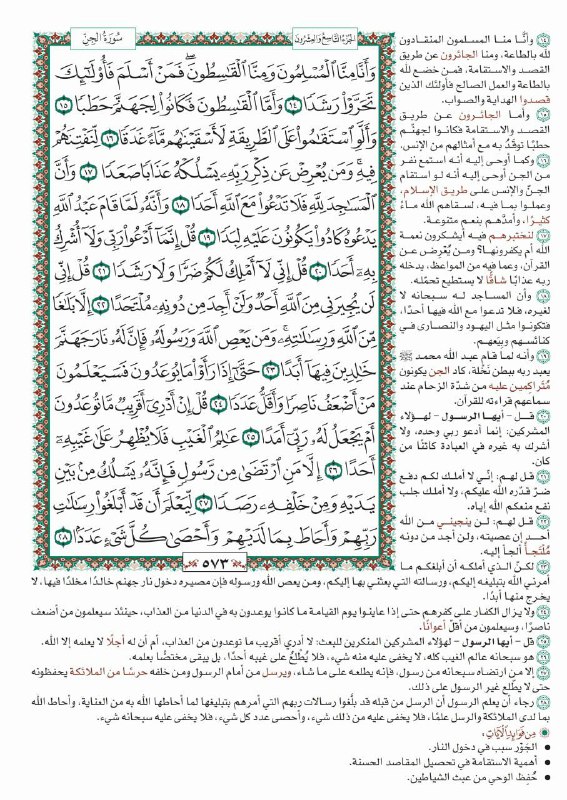 سُورَةُ الجِنِّ
الجُزْءُ التَّاسِعُ وَالعِشْرُونَ
وَأَنَّا مِنَّا ٱلْمُسْلِمُونَ وَمِنَّا ٱلْقَٰسِطُونَۖ فَمَنْ أَسْلَمَ فَأُوْلَٰٓئِكَ
تَحَرَّوْاْ رَشَدٗا ١٤ وَأَمَّا ٱلْقَٰسِطُونَ فَكَانُواْ لِجَهَنَّمَ حَطَبٗا ١٥
وَأَلَّوِ ٱسْتَقَٰمُواْ عَلَى ٱلطَّرِيقَةِ لَأَسْقَيْنَٰهُم مَّآءً غَدَقٗا ١٦ لِّنَفْتِنَهُمْ
فِيهِۚ وَمَن يُعْرِضْ عَن ذِكْرِ رَبِّهِۦ يَسْلُكْهُ عَذَابٗا صَعَدٗا ١٧ وَأَنَّ
ٱلْمَسَٰجِدَ لِلَّهِ فَلَا تَدْعُواْ مَعَ ٱللَّهِ أَحَدٗا ١٨ وَأَنَّهُۥ لَمَّا قَامَ عَبْدُ ٱللَّهِ
يَدْعُوهُ كَادُواْ يَكُونُونَ عَلَيْهِ لِبَدٗا ١٩ قُلْ إِنَّمَآ أَدْعُواْ رَبِّي وَلَآ أُشْرِكُ
بِهِۦٓ أَحَدٗا ٢٠ قُلْ إِنِّي لَآ أَمْلِكُ لَكُمْ ضَرّٗا وَلَا رَشَدٗا ٢١ قُلْ إِنِّي
لَن يُجِيرَنِي مِنَ ٱللَّهِ أَحَدٞ وَلَنْ أَجِدَ مِن دُونِهِۦ مُلْتَحَدًا ٢٢ إِلَّا بَلَٰغٗا
مِّنَ ٱللَّهِ وَرِسَٰلَٰتِهِۦۚ وَمَن يَعْصِ ٱللَّهَ وَرَسُولَهُۥ فَإِنَّ لَهُۥ نَارَ جَهَنَّمَ
خَٰلِدِينَ فِيهَآ أَبَدًا ٢٣ حَتَّىٰٓ إِذَا رَأَوْاْ مَا يُوعَدُونَ فَسَيَعْلَمُونَ
مَنْ أَضْعَفُ نَاصِرٗا وَأَقَلُّ عَدَدٗا ٢٤ قُلْ إِنْ أَدْرِيٓ أَقَرِيبٞ مَّا تُوعَدُونَ
أَمْ يَجْعَلُ لَهُۥ رَبِّيٓ أَمَدًا ٢٥ عَٰلِمُ ٱلْغَيْبِ فَلَا يُظْهِرُ عَلَىٰ غَيْبِهِۦٓ
أَحَدًا ٢٦ إِلَّا مَنِ ٱرْتَضَىٰ مِن رَّسُولٖ فَإِنَّهُۥ يَسْلُكُ مِنۢ بَيْنِ
يَدَيْهِ وَمِنْ خَلْفِهِۦ رَصَدٗا ٢٧ لِّيَعْلَمَ أَن قَدْ أَبْلَغُواْ رِسَٰلَٰتِ
رَبِّهِمْ وَأَحَاطَ بِمَا لَدَيْهِمْ وَأَحْصَىٰ كُلَّ شَيْءٍ عَدَدَۢا ٢٨
٥٧٣
١٤ وأنَّا منا المسلمون المنقادون
لله بالطاعة، ومنا الجائرون عن طريق
القصد والاستقامة، فمن خضع لله
بالطاعة والعمل الصالح فأولئك الذين
قصدوا الهداية والصواب.
١٥ وأما الجائرون عن طريق
القصد والاستقامة فكانوا لجهنّم
حطبًا توقَدُ به مع أمثالهم من الإنس.
١٦ وكما أوحى إليه أنه استمع نفر
من الجن أوحى إليه أنه لو استقام
الجنّ والإنس على طريق الإسلام،
وعملوا بما فيه، لسقاهم الله ماءً
كثيرًا، وأمدّهم بنعم متنوعة.
١٧ لنختبرهم فيه أيشكرون نعمة
الله أم يكفرونها؟ ومن يُعْرِض عن
القرآن، وعما فيه من المواعظ، يدخله
ربه عذابًا شاقًّا لا يستطيع تحمّله.
١٨ وأن المساجد له سبحانه لا
لغيره، فلا تدعوا مع الله فيها أحدًا،
فتكونوا مثل اليهود والنصارى في
كنائسهم وبِيَعهم.
١٩ وأنه لما قام عبد الله محمد ﷺ
يعبد ربه ببطن نَخْلة، كاد الجن يكونون
مُتَراكمين عليه من شدّة الزحام عند
سماعهم قراءته للقرآن.
٢٠ قل - أيها الرسول - لهؤلاء
المشركين: إنما أدعو ربي وحده، ولا
أشرك به غيره في العبادة كائنًا من
كان.
٢١ قل لهم: إنّي لا أملك لكم دفع
ضرّ قدّره الله عليكم، ولا أملك جلب
نفع منعكم الله إياه.
٢٢ قل لهم: لن ينجيني من الله
أحد إن عصيته، ولن أجد من دونه
مُلْتَجأً ألجأ إليه.
٢٣ لكنّ الذي أملكه أن أبلغكم ما
أمرني الله بتبليغه إليكم، ورسالته التي بعثني بها إليكم، ومن يعص الله ورسوله فإن مصيره دخول نار جهنم خالدًا مخلدًا فيها، لا
يخرج منها أبدًا.
٢٤ ولا يزال الكفار على كفرهم حتى إذا عاينوا يوم القيامة ما كانوا يوعدون به في الدنيا من العذاب، حينئذ سيعلمون من أضعف
ناصرًا، وسيعلمون من أقلّ أعوانًا.
٢٥ قل - أيها الرسول - لهؤلاء المشركين المنكرين للبعث: لا أدري أقريب ما توعدون من العذاب، أم أن له أجلًا لا يعلمه إلا الله.
٢٦ هو سبحانه عالم الغيب كله، لا يخفى عليه منه شيء، فلا يُطْلِع على غيبه أحدًا، بل يبقى مختصًّا بعلمه.
٢٧ إلا من ارتضاه سبحانه من رسول، فإنه يطلعه على ما شاء، ويرسل من أمام الرسول ومن خلفه حرسًا من الملائكة يحفظونه
حتى لا يطّلع غير الرسول على ذلك.
٢٨ رجاء أن يعلم الرسول أن الرسل من قبله قد بلّغوا رسالات ربهم التي أمرهم بتبليغها لما أحاطها الله به من العناية، وأحاط الله
بما لدى الملائكة والرسل علمًا، فلا يخفى عليه من ذلك شيء، وأحصى عدد كل شيء، فلا يخفى عليه سبحانه شيء.
مِن فَوَائِدِ الآيَاتِ:
• الجَوْر سبب في دخول النار.
• أهمية الاستقامة في تحصيل المقاصد الحسنة.
• حُفِظ الوحي من عبث الشياطين.